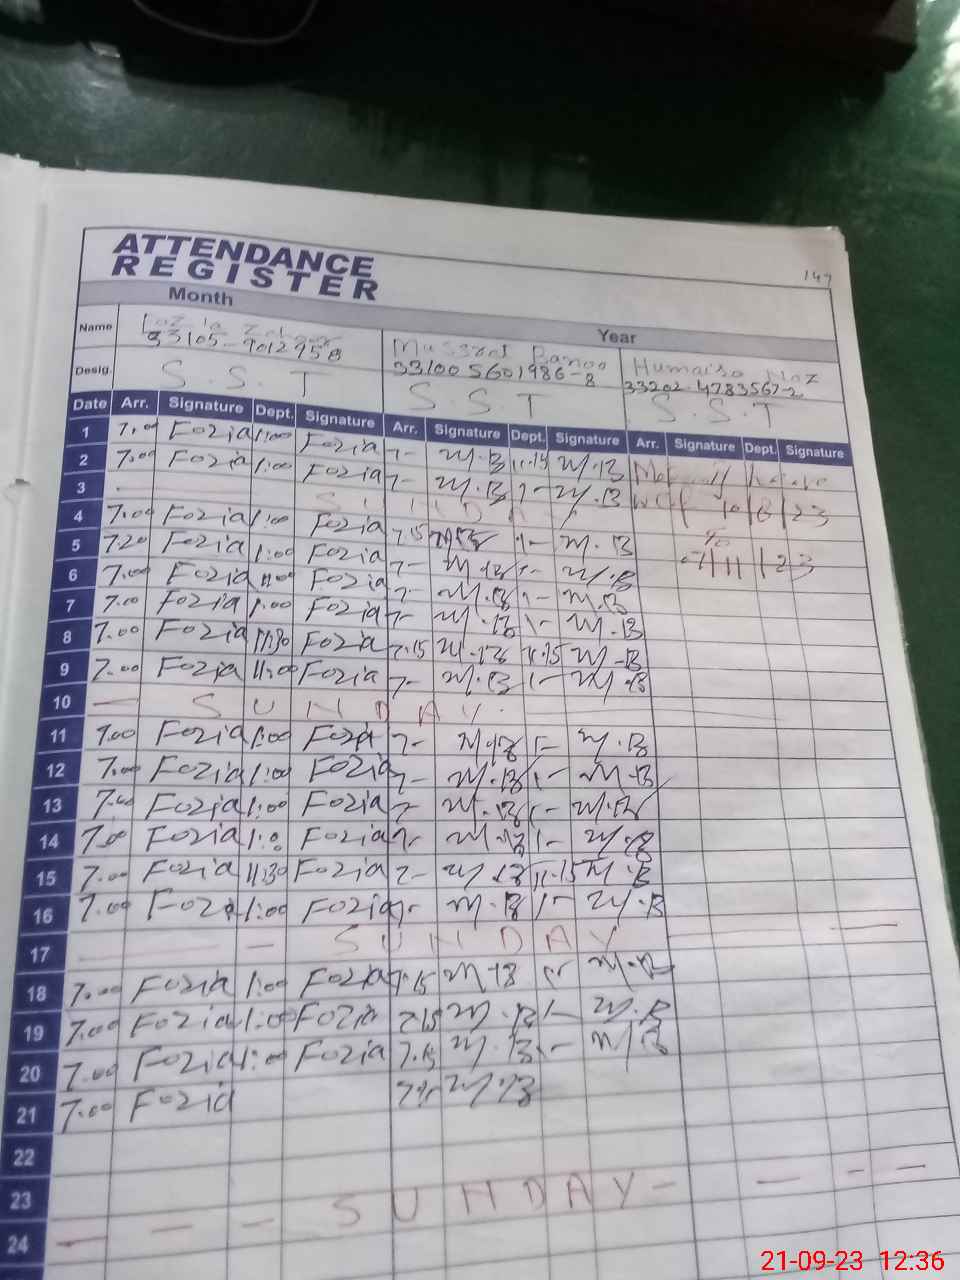 147
ATTENDANCE
REGISTER
Month Year
Name Fozia 33105-9012958 Mussrat Banoo 331005601986-8 Humaira Naz 33202-4783567-2
Desig. S.S.T S.S.T S.S.T
Date Arr. Signature Dept. Signature Arr. Signature Dept. Signature Arr. Signature Dept. Signature
1 7.00 Fozia 1:00 Fozia 7- M.B 11.15 M.B leave
2 7.00 Fozia 1:00 Fozia 7- M.B 1- M.B
3 SUNDAY
4 7.00 Fozia 1:00 Fozia 7.15 M.B 1- M.B
5 7.20 Fozia 1:00 Fozia 7- M.B 1- M.B
6 7.00 Fozia 11:00 Fozia 7- M.B 1- M.B
7 7.00 Fozia 1.00 Fozia 7- M.B 1- M.B
8 7.00 Fozia 11:30 Fozia 7.15 M.B 11.15 M.B
9 7.00 Fozia 11:00 Fozia 7- M.B 1- M.B
10 — SUNDAY
11 7.00 Fozia 1:00 Fozia 7- M.B 1- M.B
12 7.00 Fozia 1:00 Fozia 7- M.B 1- M.B
13 7.00 Fozia 1:00 Fozia 7- M.B 1- M.B
14 7.00 Fozia 1:0 Fozia 7- M.B 1- M.B
15 7.00 Fozia 11:30 Fozia 7- M.B 11.15 M.B
16 7.00 Fozia 1:00 Fozia 7- M.B 1- M.B
17 — SUNDAY —
18 7.00 Fozia 1:00 Fozia 7.15 M.B 1- M.B
19 7.00 Fozia 1:00 Fozia 7.15 M.B 1- M.B
20 7.00 Fozia 1:00 Fozia 7.15 M.B 1- M.B
21 7.00 Fozia 7.15 M.B
22
23
24 — — — SUNDAY — — — —
21-09-23 12:36